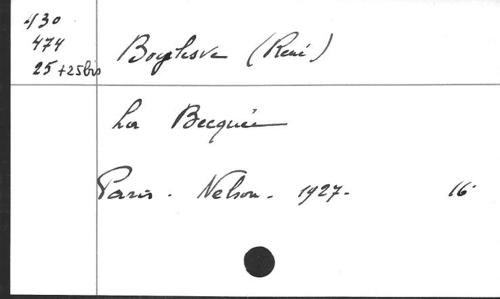 430
474
25+25bis
Boylesve (René)
La Becquée
Paris - Nelson - 1927 - 16°